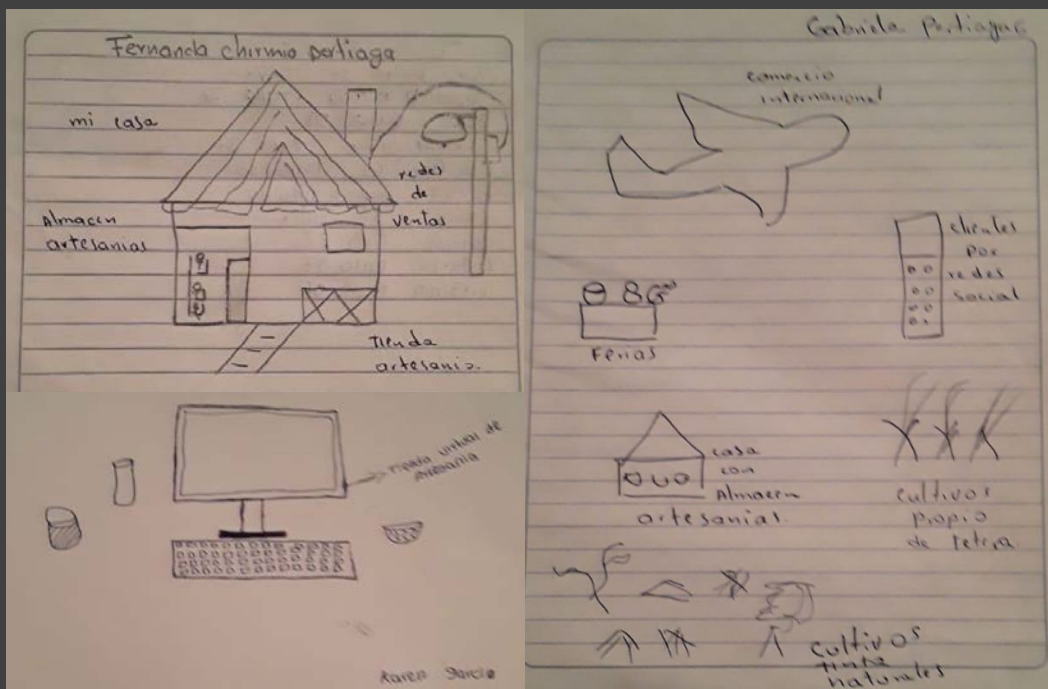 Fernanda chirmia portiaga
mi casa
redes
de
ventas
Almacen
artesanias
Tienda
artesania.
Tienda virtual de
artesania
Karen Garcia
Gabriela
comercio
internacional
clientes
por
redes
social
Ferias
casa
con
Almacen
artesanias.
cultivos
propio
de tetera.
cultivos
tinta
naturales